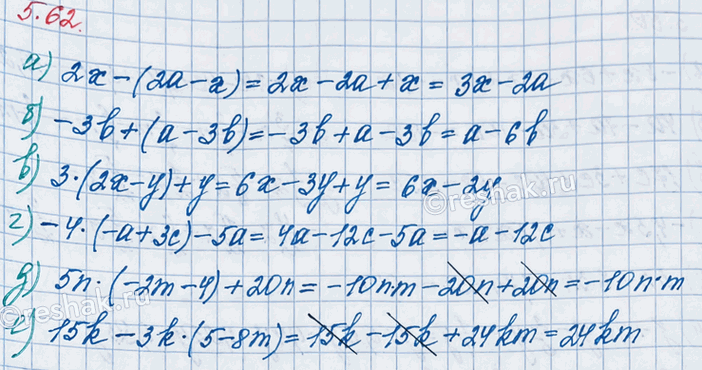 5.62.
а) 2x-(2a-x)=2x-2a+x=3x-2a
б) -3b+(a-3b)=-3b+a-3b=a-6b
в) 3·(2x-y)+y=6x-3y+y=6x-2y
г) -4·(-a+3c)-5a=4a-12c-5a=-a-12c
д) 5n·(-2m-4)+20n=-10nm-20n+20n=-10n·m
е) 15k-3k·(5-8m)=15k-15k+24km=24km
©reshak.ru
©reshak.ru